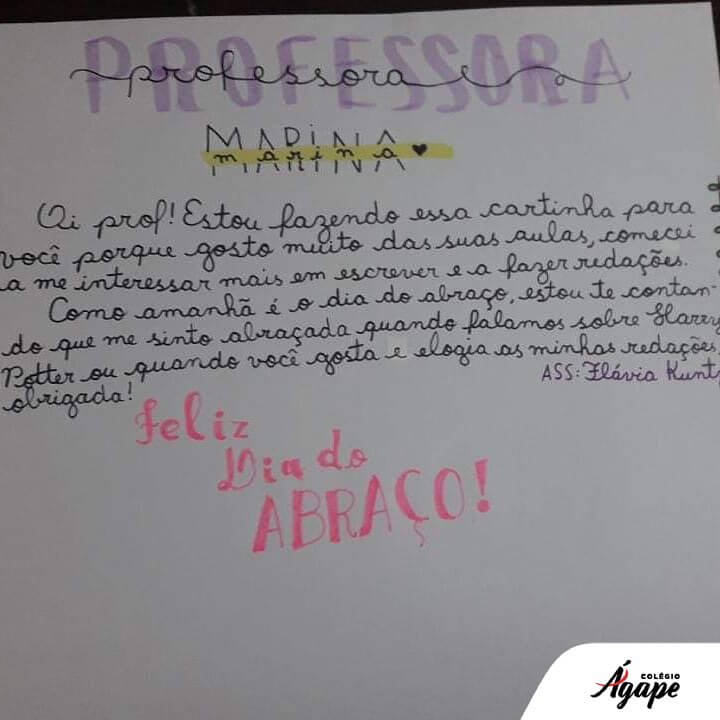 PROFESSORA
professora
MARINA
marina
Oi prof! Estou fazendo essa cartinha para
você porque gosto muito das suas aulas, comecei
a me interessar mais em escrever e a fazer redações.
Como amanhã é o dia do abraço, estou te contan-
do que me sinto abraçada quando falamos sobre Harry
Potter ou quando você gosta e elogia as minhas redações,
obrigada!
ASS: Flávia Kunts
Feliz
Dia do
ABRAÇO!
COLÉGIO
Ágape